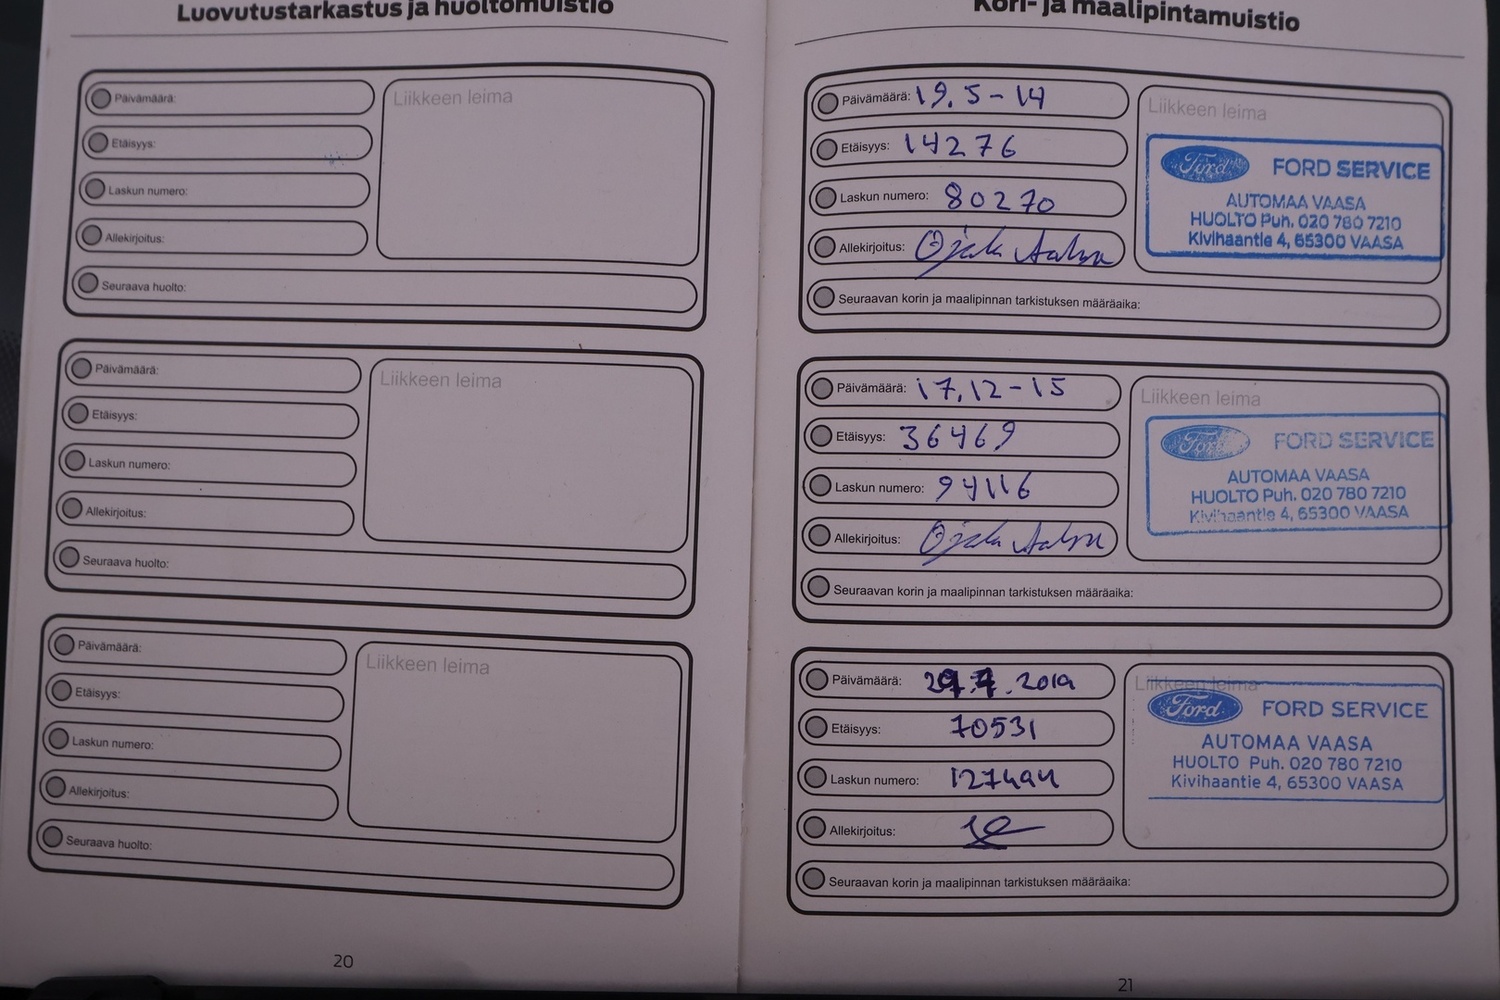 Luovutustarkastus ja huoltomuistio
Päivämäärä:
Liikkeen leima
Etäisyys:
Laskun numero:
Allekirjoitus:
Seuraava huolto:
Päivämäärä:
Liikkeen leima
Etäisyys:
Laskun numero:
Allekirjoitus:
Seuraava huolto:
Päivämäärä:
Liikkeen leima
Etäisyys:
Laskun numero:
Allekirjoitus:
Seuraava huolto:
20
Kori- ja maalipintamuistio
Päivämäärä: 19.5-14
Etäisyys: 14276
Laskun numero: 80270
Allekirjoitus: Ojala
Liikkeen leima
Ford FORD SERVICE
AUTOMAA VAASA
HUOLTO Puh. 020 780 7210
Kivihaantie 4, 65300 VAASA
Seuraavan korin ja maalipinnan tarkistuksen määräaika:
Päivämäärä: 17.12-15
Etäisyys: 36469
Laskun numero: 94116
Allekirjoitus: Ojala
Liikkeen leima
Ford FORD SERVICE
AUTOMAA VAASA
HUOLTO Puh. 020 780 7210
Kivihaantie 4, 65300 VAASA
Seuraavan korin ja maalipinnan tarkistuksen määräaika:
Päivämäärä: 29.7.2019
Etäisyys: 70531
Laskun numero: 127494
Allekirjoitus:
Liikkeen leima
Ford FORD SERVICE
AUTOMAA VAASA
HUOLTO Puh. 020 780 7210
Kivihaantie 4, 65300 VAASA
Seuraavan korin ja maalipinnan tarkistuksen määräaika:
21